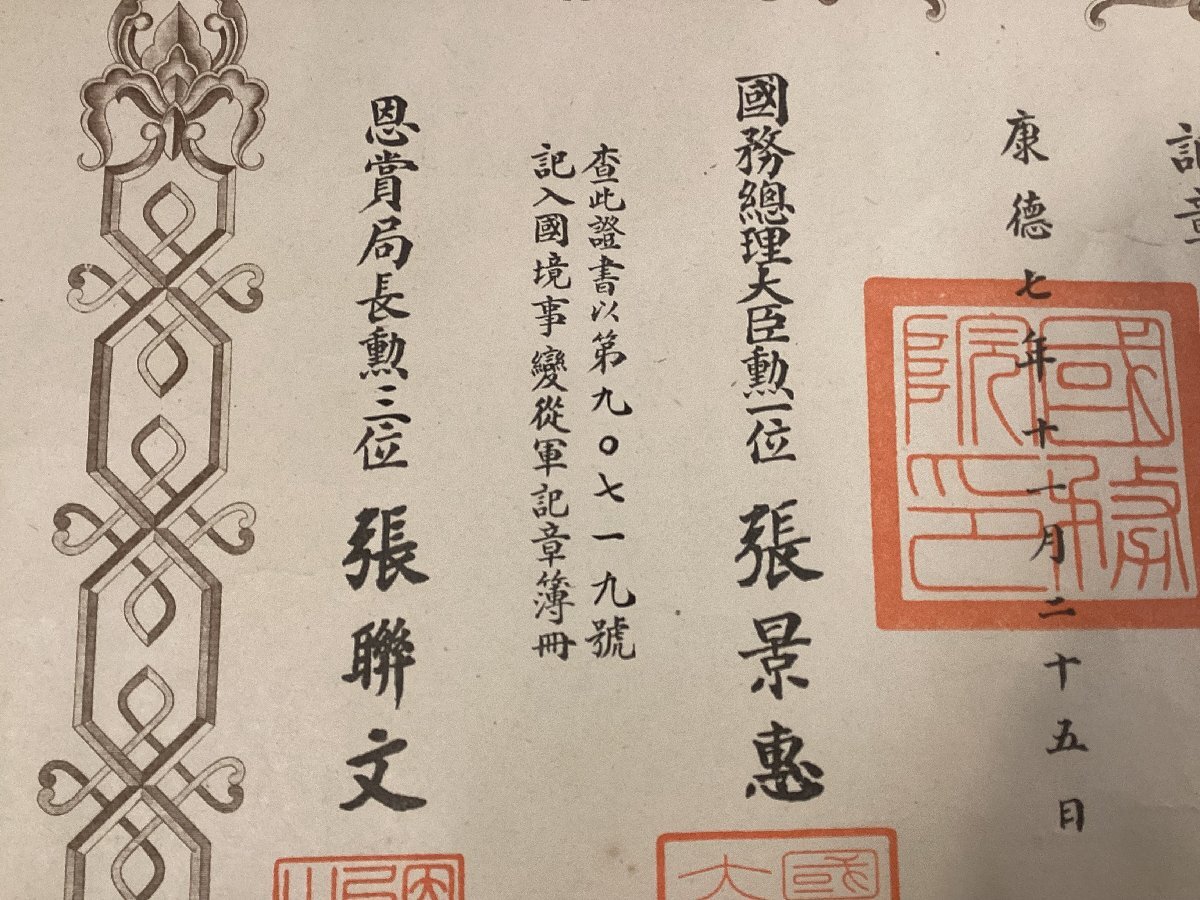 記章
康德七年十一月二十五日
國務院印
國務總理大臣勲一位 張景惠
查此證書以第九〇七一九號
記入國境事變從軍記章簿冊
恩賞局長勲三位 張聯文